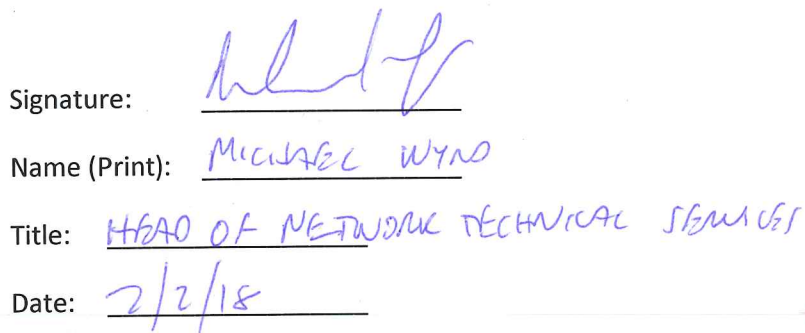 Signature:
Name (Print): MICHAEL WYND
Title: HEAD OF NETWORK TECHNICAL SERVICES
Date: 2/2/18